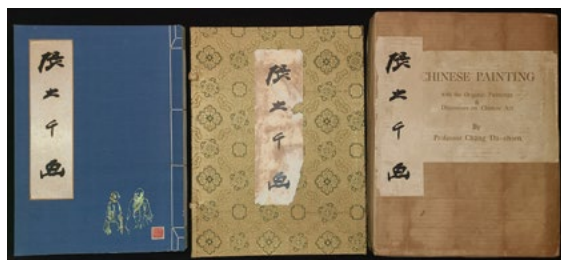 張大千画
張大千画
張大千画
CHINESE PAINTING
with the Original Paintings
&
Discourses on Chinese Art
By
Professor Chang Da-chien